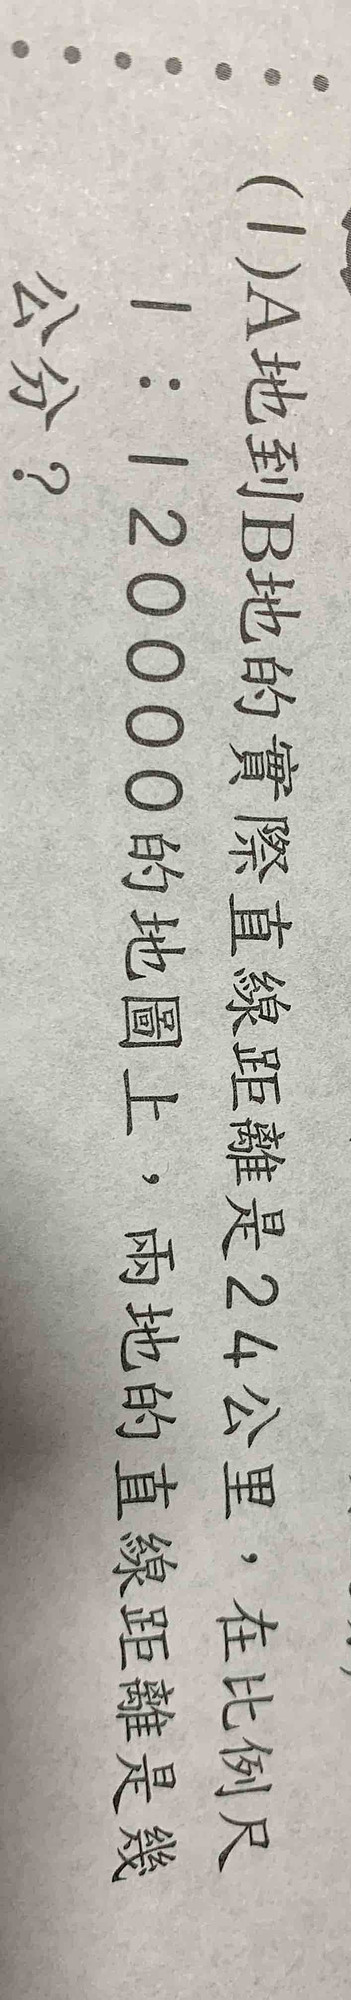 (1)A地到B地的實際直線距離是24公里，在比例尺
1：120000的地圖上，兩地的直線距離是幾
公分？